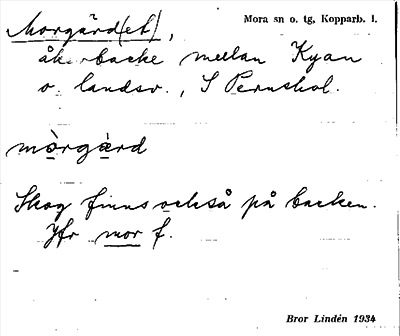 Morgärd(et), Mora sn o. tg, Kopparb. l.
åkerbacke mellan Kyan
o. landsv., S
mòrgä̀rd
Skog finns också på backen.
Jfr mor f.
Bror Lindén 1934